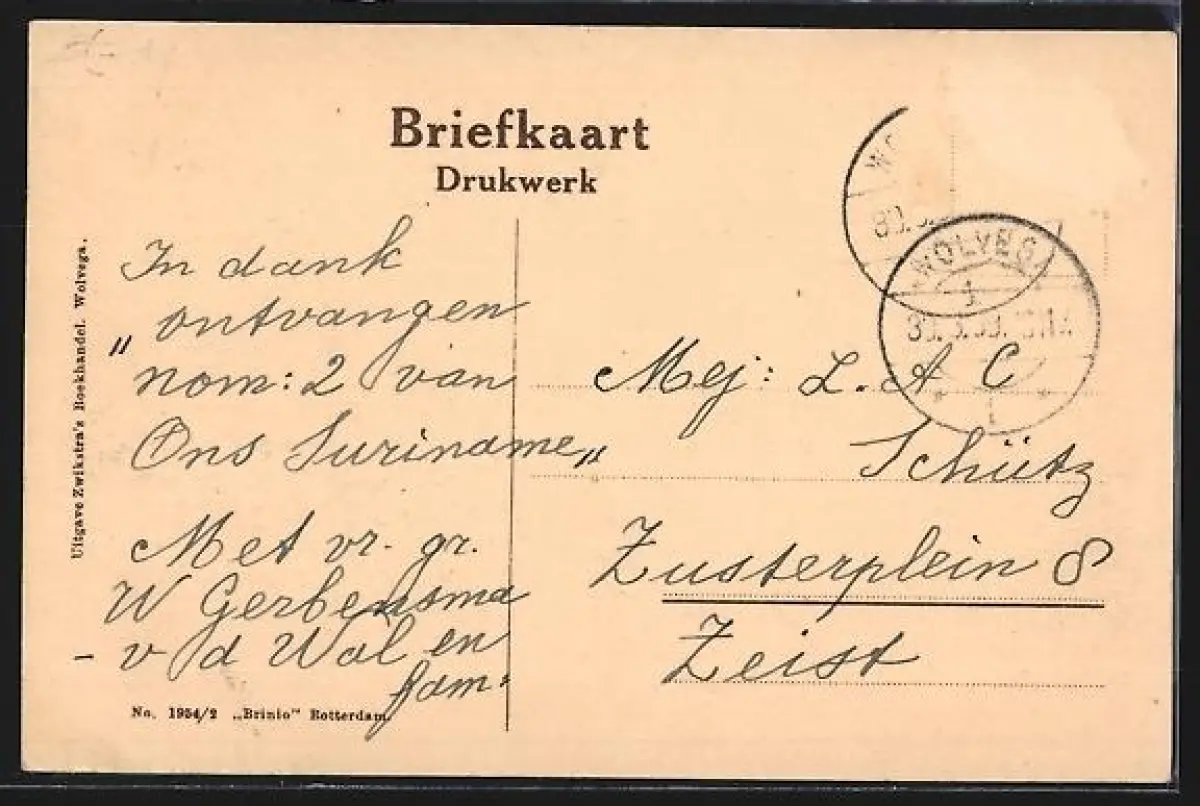 Briefkaart
Drukwerk
Uitgave Zwikstra's Boekhandel. Wolvega.
In dank
ontvangen
„ nom: 2 van
Ons Suriname„
Met vr. gr.
W Gerbensma
- v d Wal en
fam:
No. 1954/2 „Brinio" Rotterdam.
WOLVEGA
1
Mej: L. A C
Schütz
Zusterplein 8
Zeist